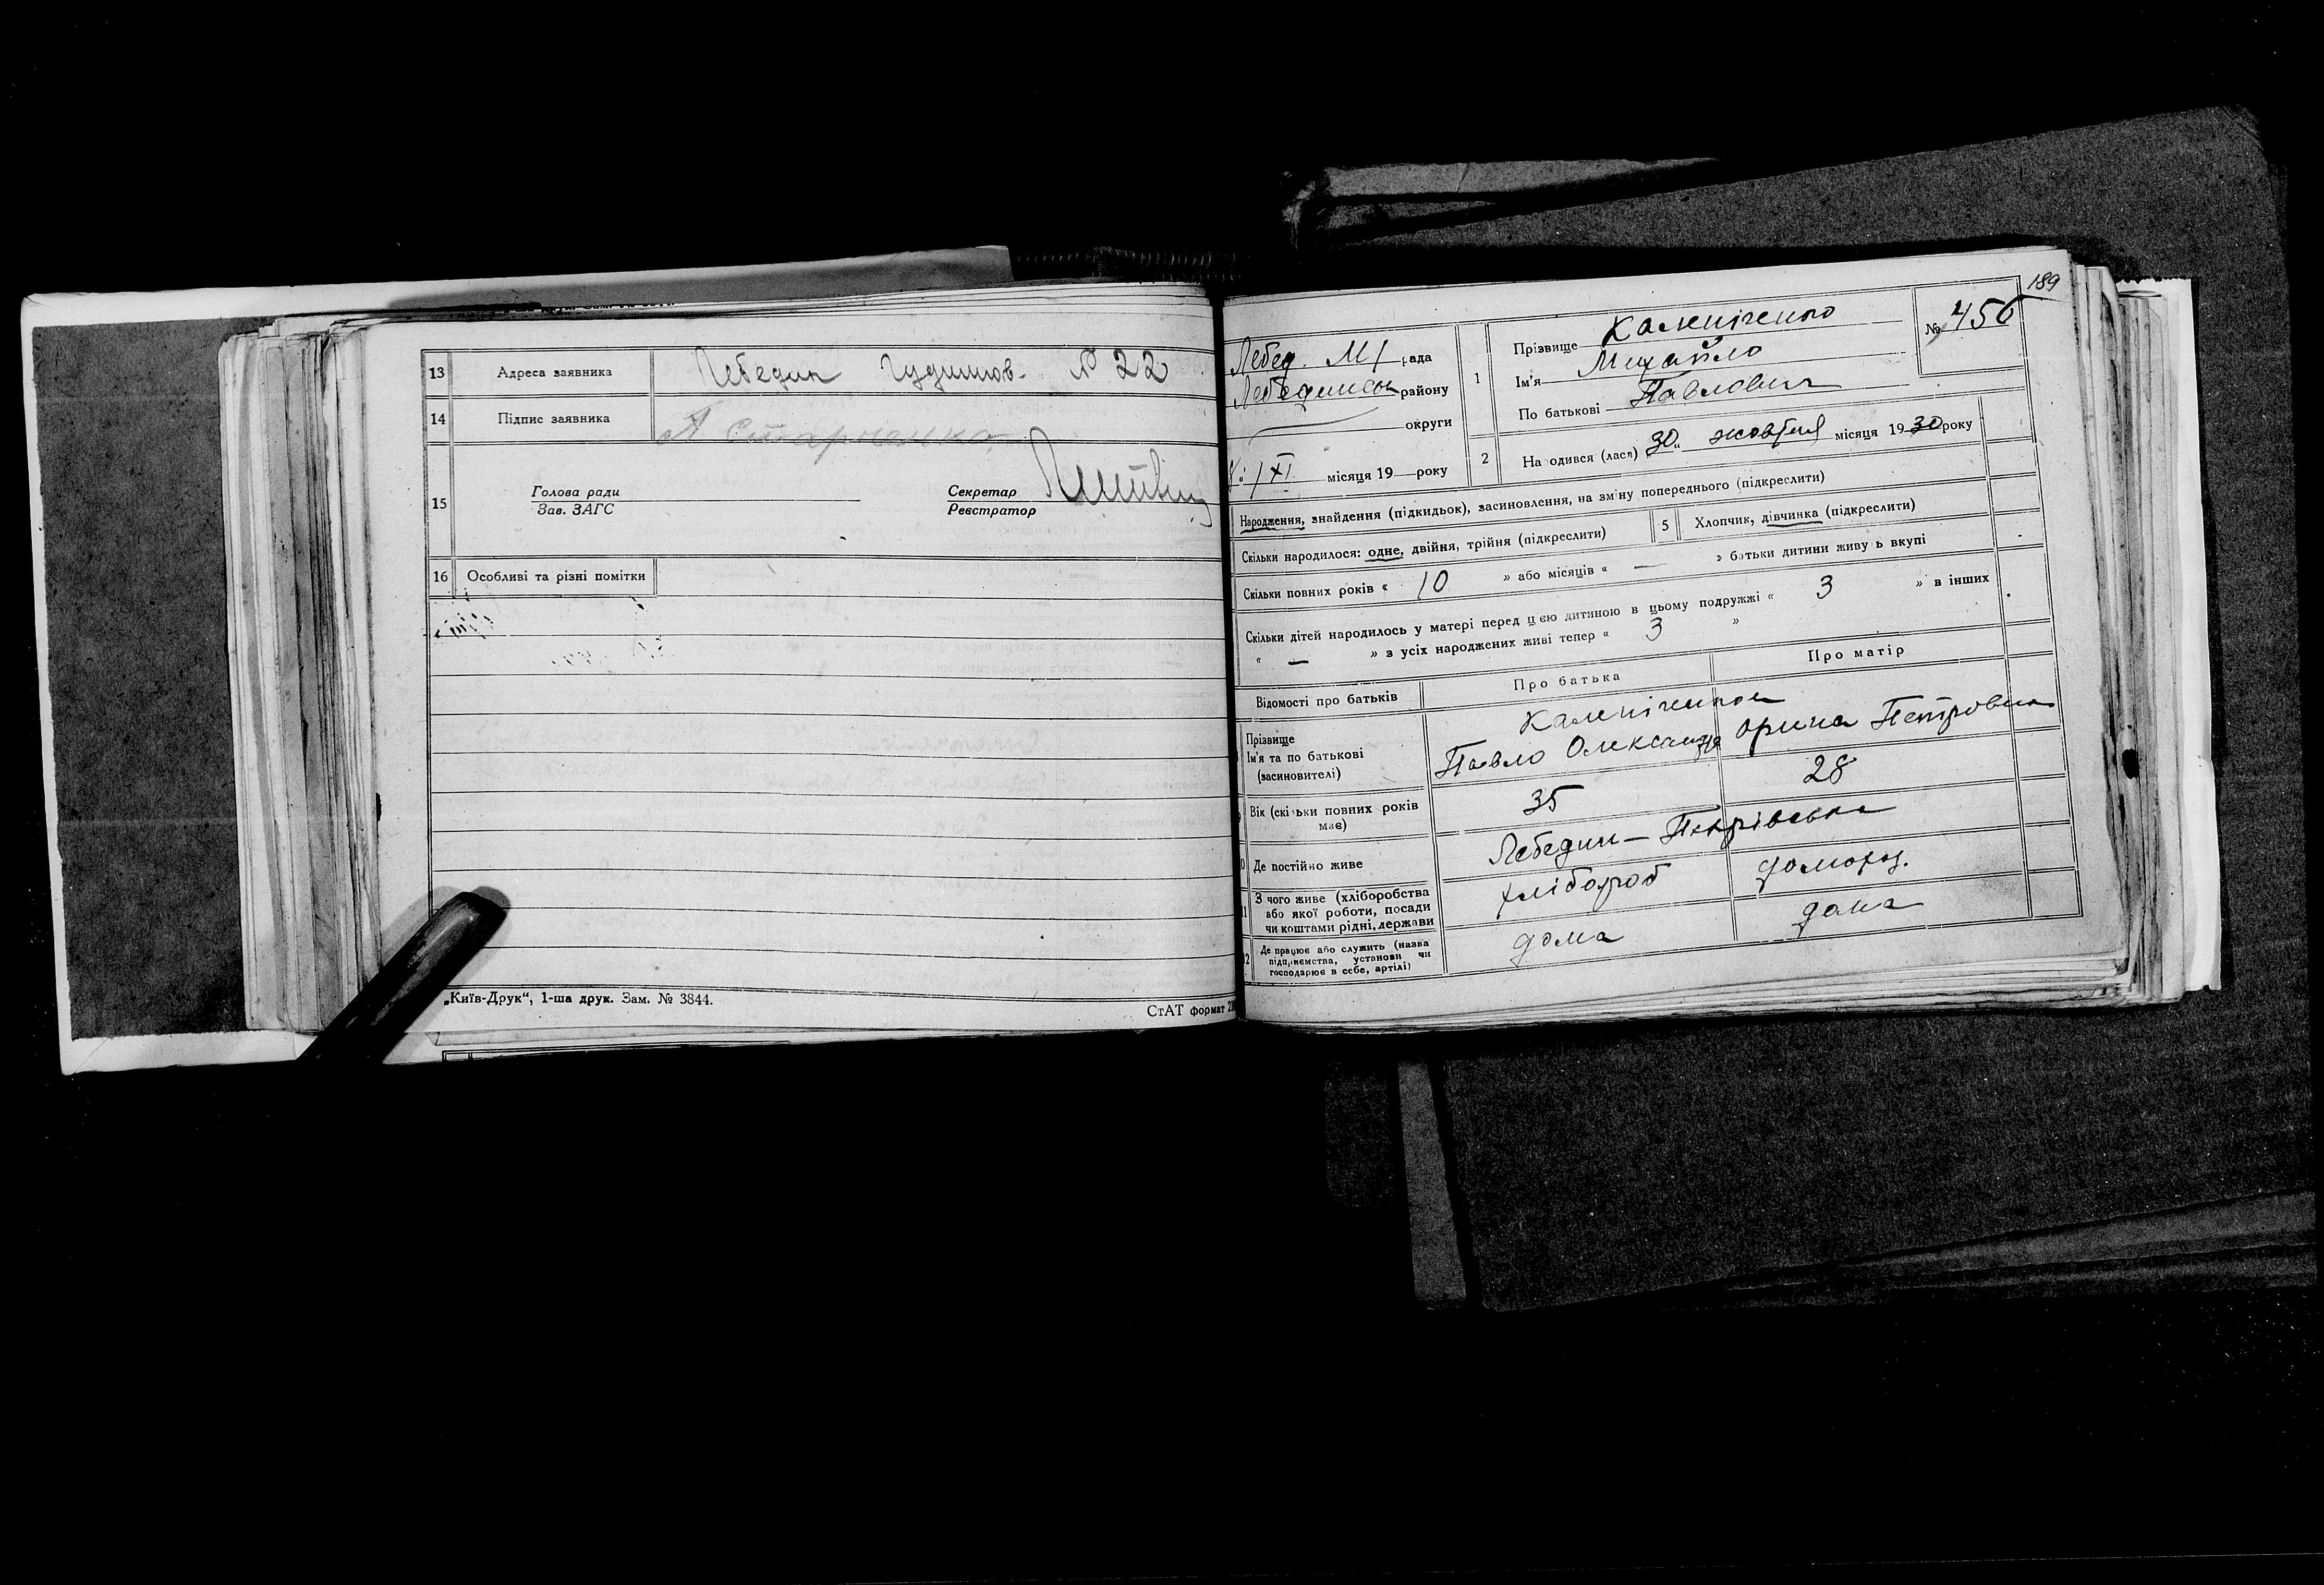 13 Адреса заявника Лебедин № 22
14 Підпис заявника Старченко
15 Голова ради
Зав. ЗАГС
Секретар
Реєстратор
16 Особливі та різні помітки
„Київ-Друк“, 1-ша друк. Зам. № 3844.
СтАТ формат
189
Лебед. М/рада
Лебединськ району
округи
/XI місяця 19 року
№ 456
1 Прізвище
Ім'я Михайло
По батькові Павлович
2 На одився (лася) 30 „ жовтня місяця 1930 року
Народження, знайдення (підкидьок), засиновлення, на зміну попереднього (підкреслити)
Скільки народилося: одне, двійня, трійня (підкреслити) 5 Хлопчик, дівчинка (підкреслити)
Скільки повних років « 10 » або місяців « — » батьки дитини живу ь вкупі
Скільки дітей народилось у матері перед цією дитиною в цьому подружжі « 3 » в інших
« — » з усіх народжених живі тепер « 3 »
Відомості про батьків Про батька Про матір
Прізвище
Ім'я та по батькові
(засиновителі)
Павло Олександр Орина Петровна
Вік (скільки повних років
має)
35 28
Де постійно живе Лебедин – Петрівська
З чого живе (хліборобства
або якої роботи, посади
чи коштами рідні, держави
хлібороб домогосп.
Де працює або служить (назва
підприємства, установи чи
господарює в себе, артілі)
дома дома